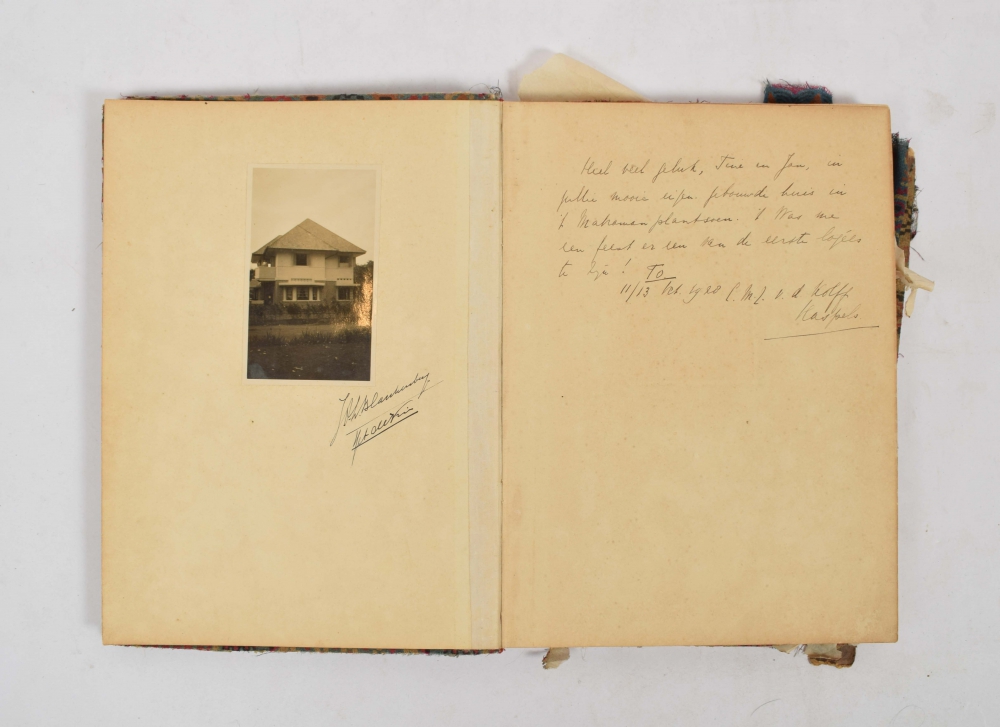 Joh. Blankenberg
Heel veel geluk, Tine en Jan, in
jullie mooie eigen gebouwde huis in
't plantsoen. 't Was me
een feest er een van de eerste logées
te zijn! To
11/13 Oct. 1928 C. M. L. v. d. Wolff
Kaspels